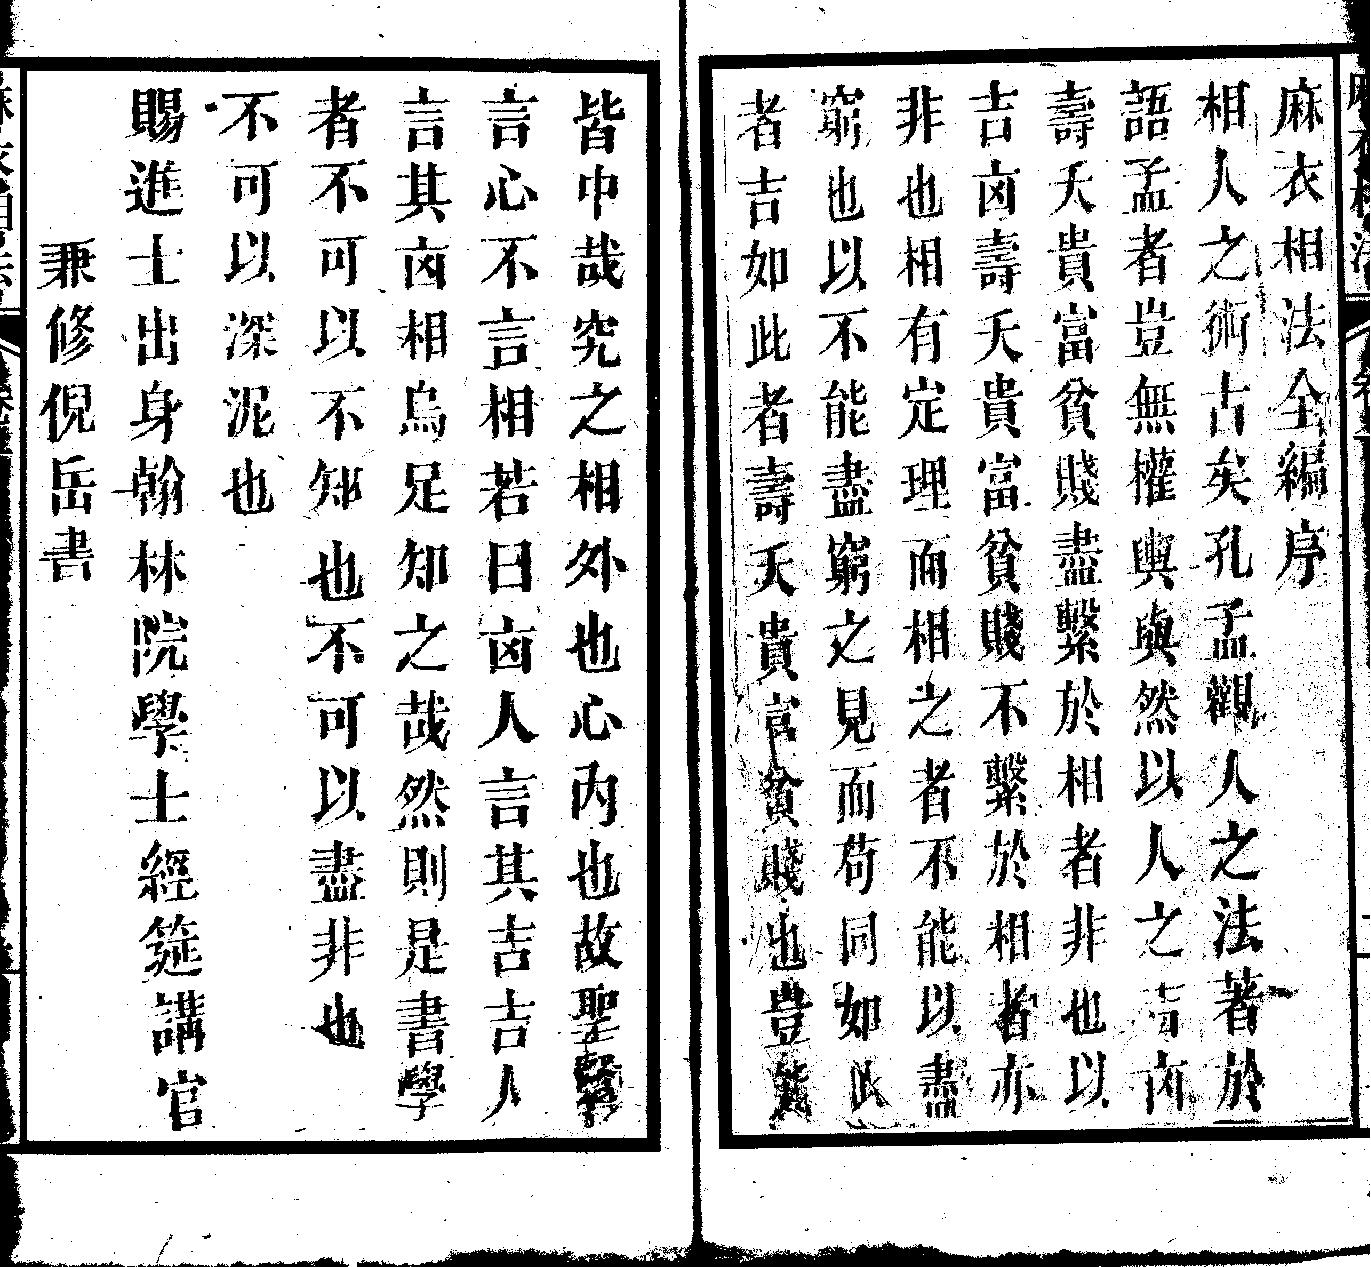 麻衣相法全編序
相人之術古矣孔孟觀人之法著於
語孟者豈無權輿與然以人之吉㓙
壽夭貴富貧賤盡繫於相者非也以
吉㓙壽夭貴富貧賤不繫於相者亦
非也相有定理而相之者不能以盡
窮也以不能盡窮之見而苟同如此
者吉如此者壽夭貴富貧賤也豈能
皆巾哉究之相外也心內也故聖賢
言心不言相若曰㓙人言其吉吉人
言其㓙相烏足知之哉然則是書學
者不可以不知也不可以盡非也
不可以深泥也
賜進士出身翰林院學士經筵講官
兼修倪岳書